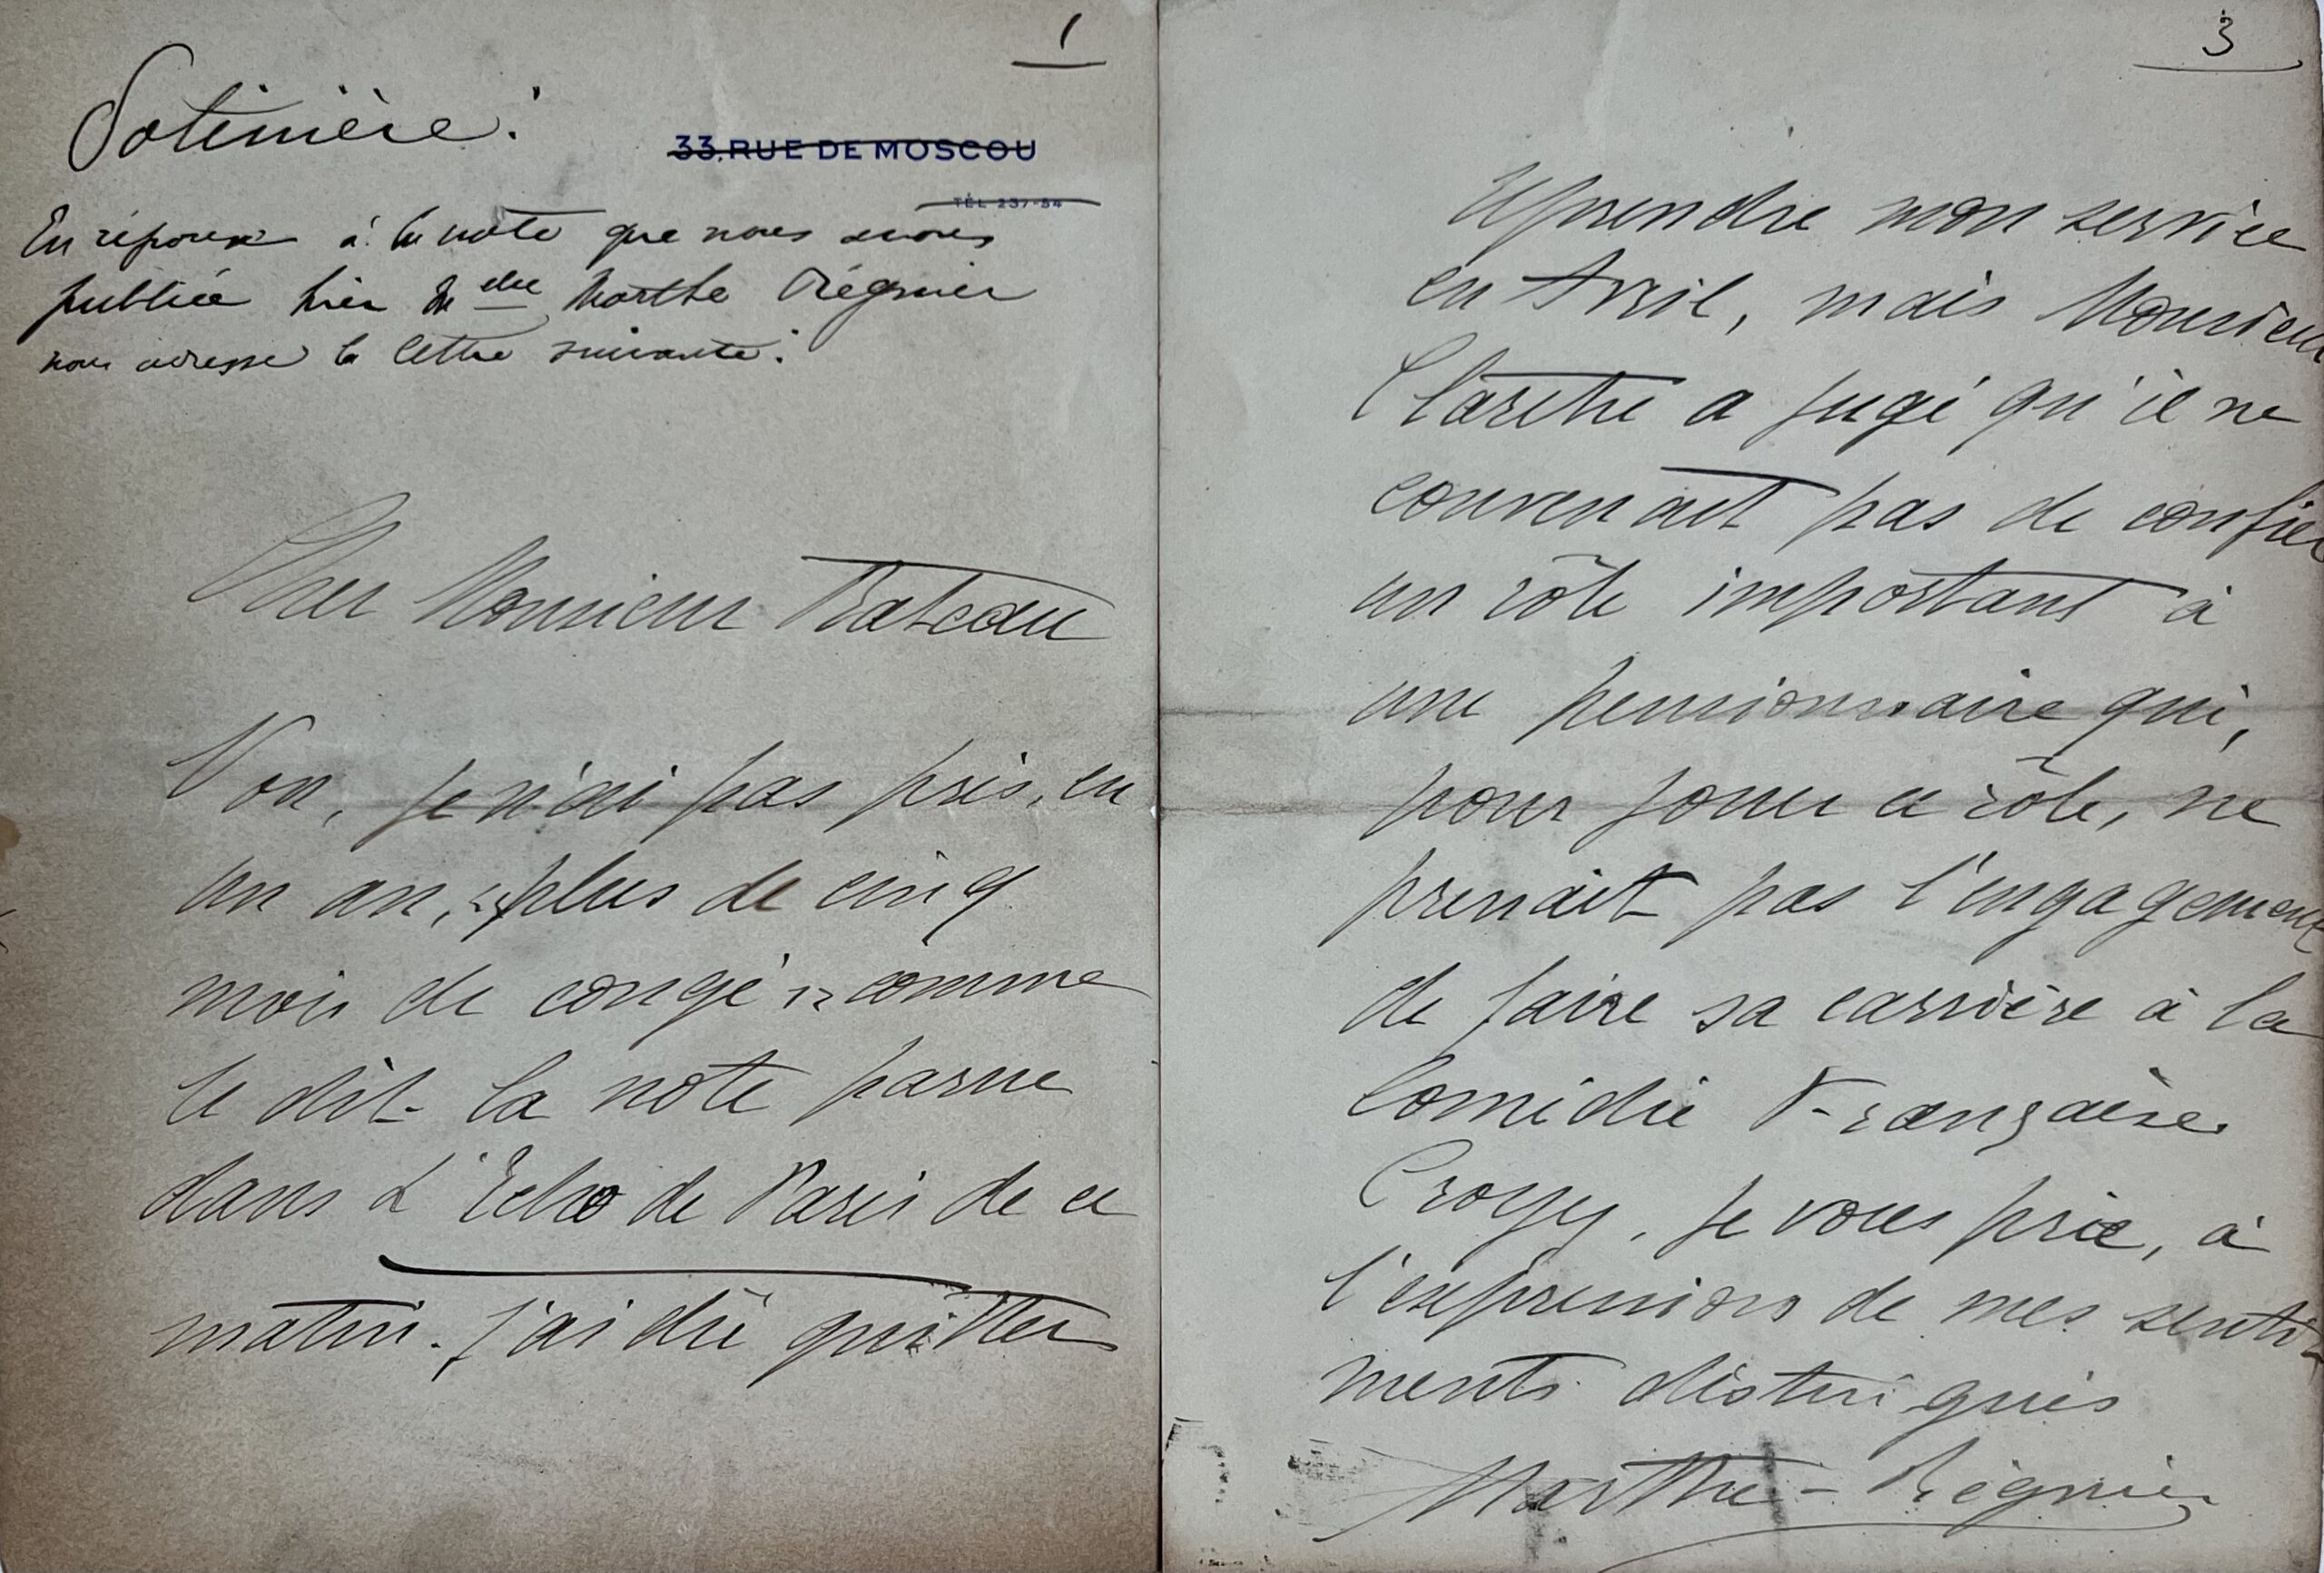 1
Sotinière :
33, RUE DE MOSCOU
TÉL 237-54
En réponse à la note que nous avons
publiée hier Melle Marthe Régnier
nous adresse la lettre suivante :
Cher Monsieur Bateau
Non, je n'ai pas pris, en
un an, « plus de cinq
mois de congé » comme
le dit la note parue
dans L'Echo de Paris de ce
matin. J'ai dû quitter
3
reprendre mon service
en Avril, mais Monsieur
Claretie a jugé qu'il ne
convenait pas de confier
un rôle important à
une pensionnaire qui,
pour jouer ce rôle, ne
prenait pas l'engagement
de faire sa carrière à la
Comédie Française.
Croyez, je vous prie, à
l'expression de mes senti-
ments distingués
Marthe-Régnier